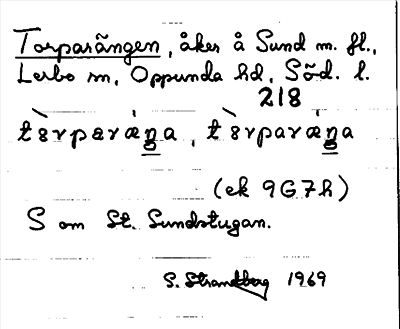 Torparängen, åker å Sund m. fl.,
Lerbo sn, Oppunda hd, Söd. l.
218
tòrparæ̍ŋa, tòrparæ̍ŋa
(ek 9G7h)
S om St. Sundstugan.
S. Strandberg 1969